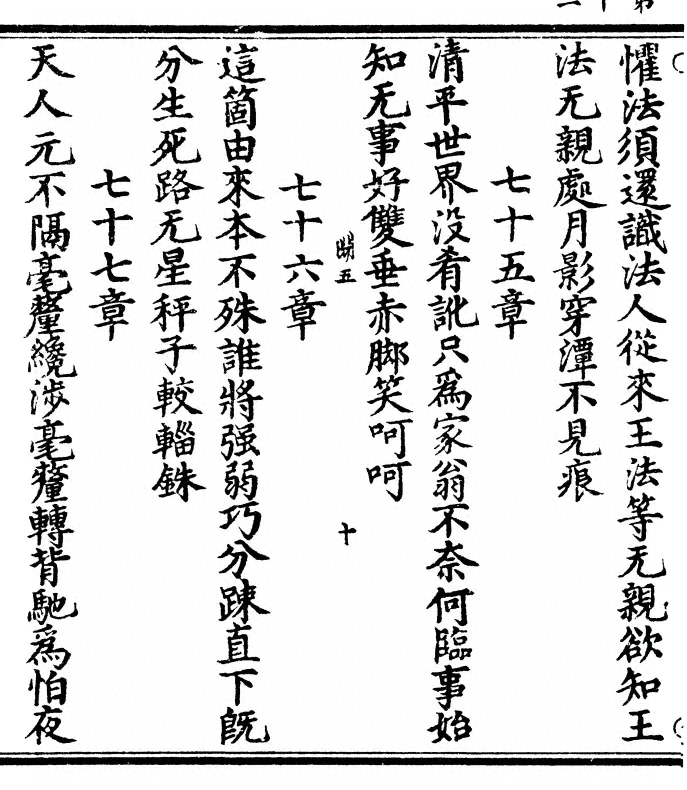 懼法須還識法人從來王法等无親欲知王
法无親處月影穿潭不見痕
七十五章
清平世界没肴訛只爲家翁不奈何臨事始
知无事好雙垂赤脚笑呵呵
十
七十六章
這箇由來本不殊誰將强弱巧分踈直下既
分生死路无星秤子較輜銖
七十七章
天人元不隔毫釐纔涉毫釐轉背馳爲怕夜